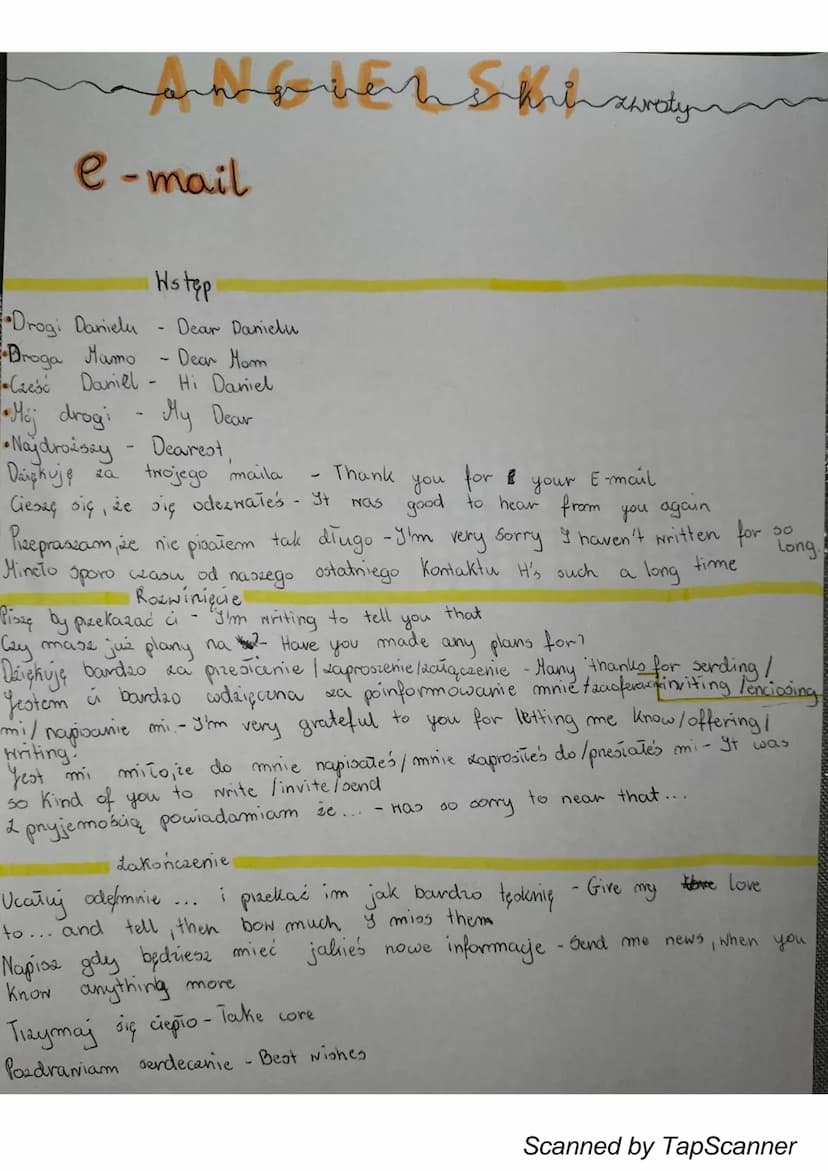 ANGIELSKI
angielski zwroty
e-mail
Wstęp
•Drogi Danielu - Dear Danielu
•Droga Mamo - Dear Mom
•Cześć Daniel - Hi Daniel
•Mój drogi - My Dear
•Najdroższy - Dearest,
Dziękuję za twojego maila - Thank you for your E-mail
Cieszę się, że się odezwałeś - It was good to hear from you again
Przepraszam, że nie pisałem tak długo - I'm very sorry I haven't written for so long.
Mineło sporo czasu od naszego ostatniego kontaktu It's such a long time
Rozwinięcie
Piszę by przekazać ci - I'm writing to tell you that
Czy masz już plany na ?- Have you made any plans for?
Dziękuję bardzo za przesłanie / zaproszenie/załączenie - Many thanks for serding / inviting /enciosing
Jestem ci bardzo wdzięczna za poinformowanie mnie /
mi/ napisanie mi - I'm very grateful to you for letting me know/offering/
writing.
Jest mi miło, że do mnie napisałeś/ mnie zaprosiłeś do /przesłałeś mi - It was
so kind of you to write /invite/send
Z pryjemnością powiadamiam że... - was so sorry to near that...
Zakończenie
Ucałuj odemnie ... i przekaż im jak bardzo tęsknię - Give my love
to... and tell, then bow much I miss them
Napisz gdy będziesz mieć jakieś nowe informacje - Send me news, when you
know anything more
Trzymaj się ciepło - Take core
Pozdrawiam serdecznie - Best wishes
Scanned by TapScanner